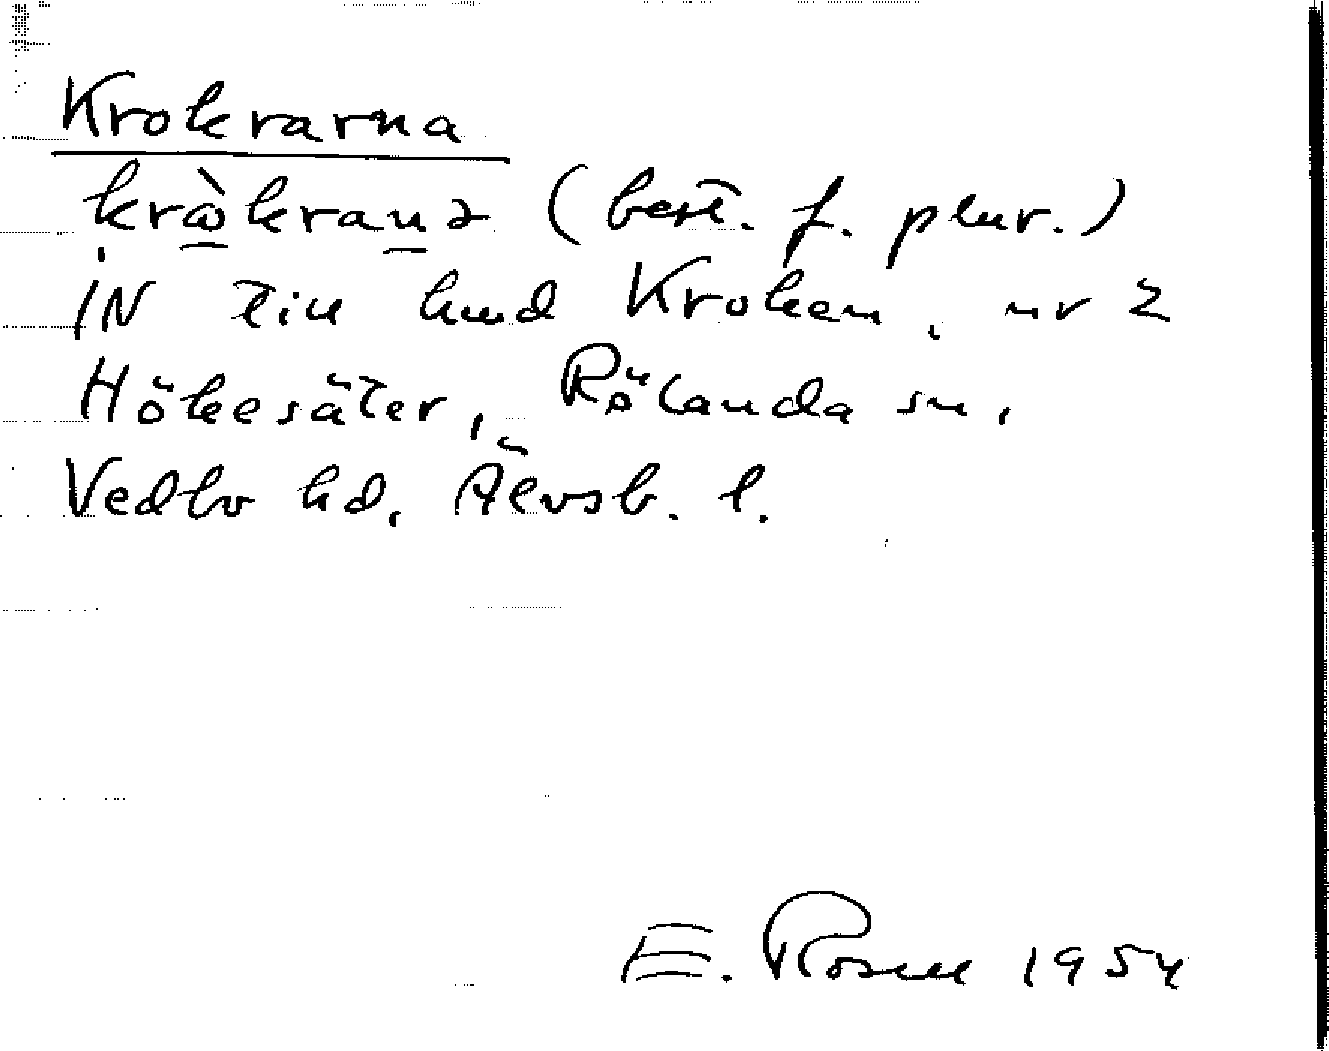 Krokrarna
krὼkranə (best. f. plur.)
IN till hmd Kroken, nr 2
Hökesäter, Rölanda sn,
Vedbo hd, Älvsb. l.
E. Rosell 1954